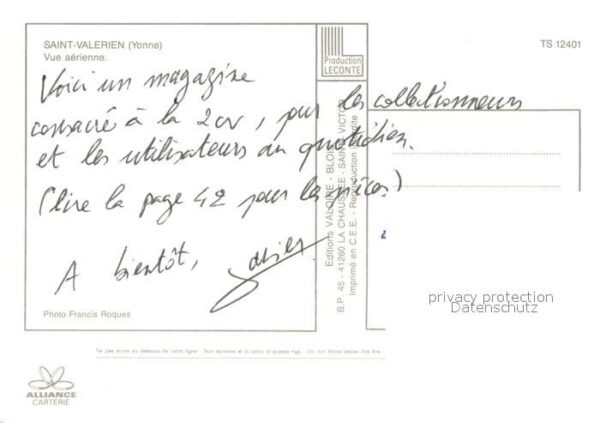 SAINT-VALERIEN (Yonne)
Vue aérienne.
Production
LECONTE
TS 12401
Voici un magazine
consacré à la 2cv, pour les collectionneurs
et les utilisateurs au quotidien.
(lire la page 42 pour les pièces)
A bientôt,
Photo Francis Roques
Editions VALOIRE - BLOIS
B.P. 45 - 41260 LA CHAUSSÉE - SAINT VICTOR
Imprimé en C.E.E. - Reproduction interdite
privacy protection
Datenschutz
Ne pas écrire au dessous de cette ligne - Non scrivere al di sotto di questa riga - Do not Write below this line
ALLIANCE
CARTERIE